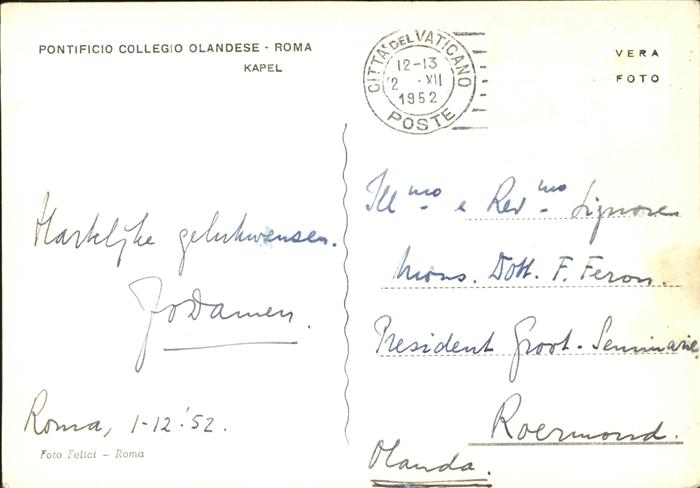 PONTIFICIO COLLEGIO OLANDESE - ROMA
KAPEL
CITTA' DEL VATICANO
12-13
2 · XII
1952
POSTE
VERA
FOTO
Hartelijke gelukwensen.
Jo Damen.
Roma, 1-12-'52.
Foto Felici - Roma
Ill mo e Rev mo Signore
Mons. Dott. F. Feron.
President Groot-Seminarie
Roermond.
Olanda.